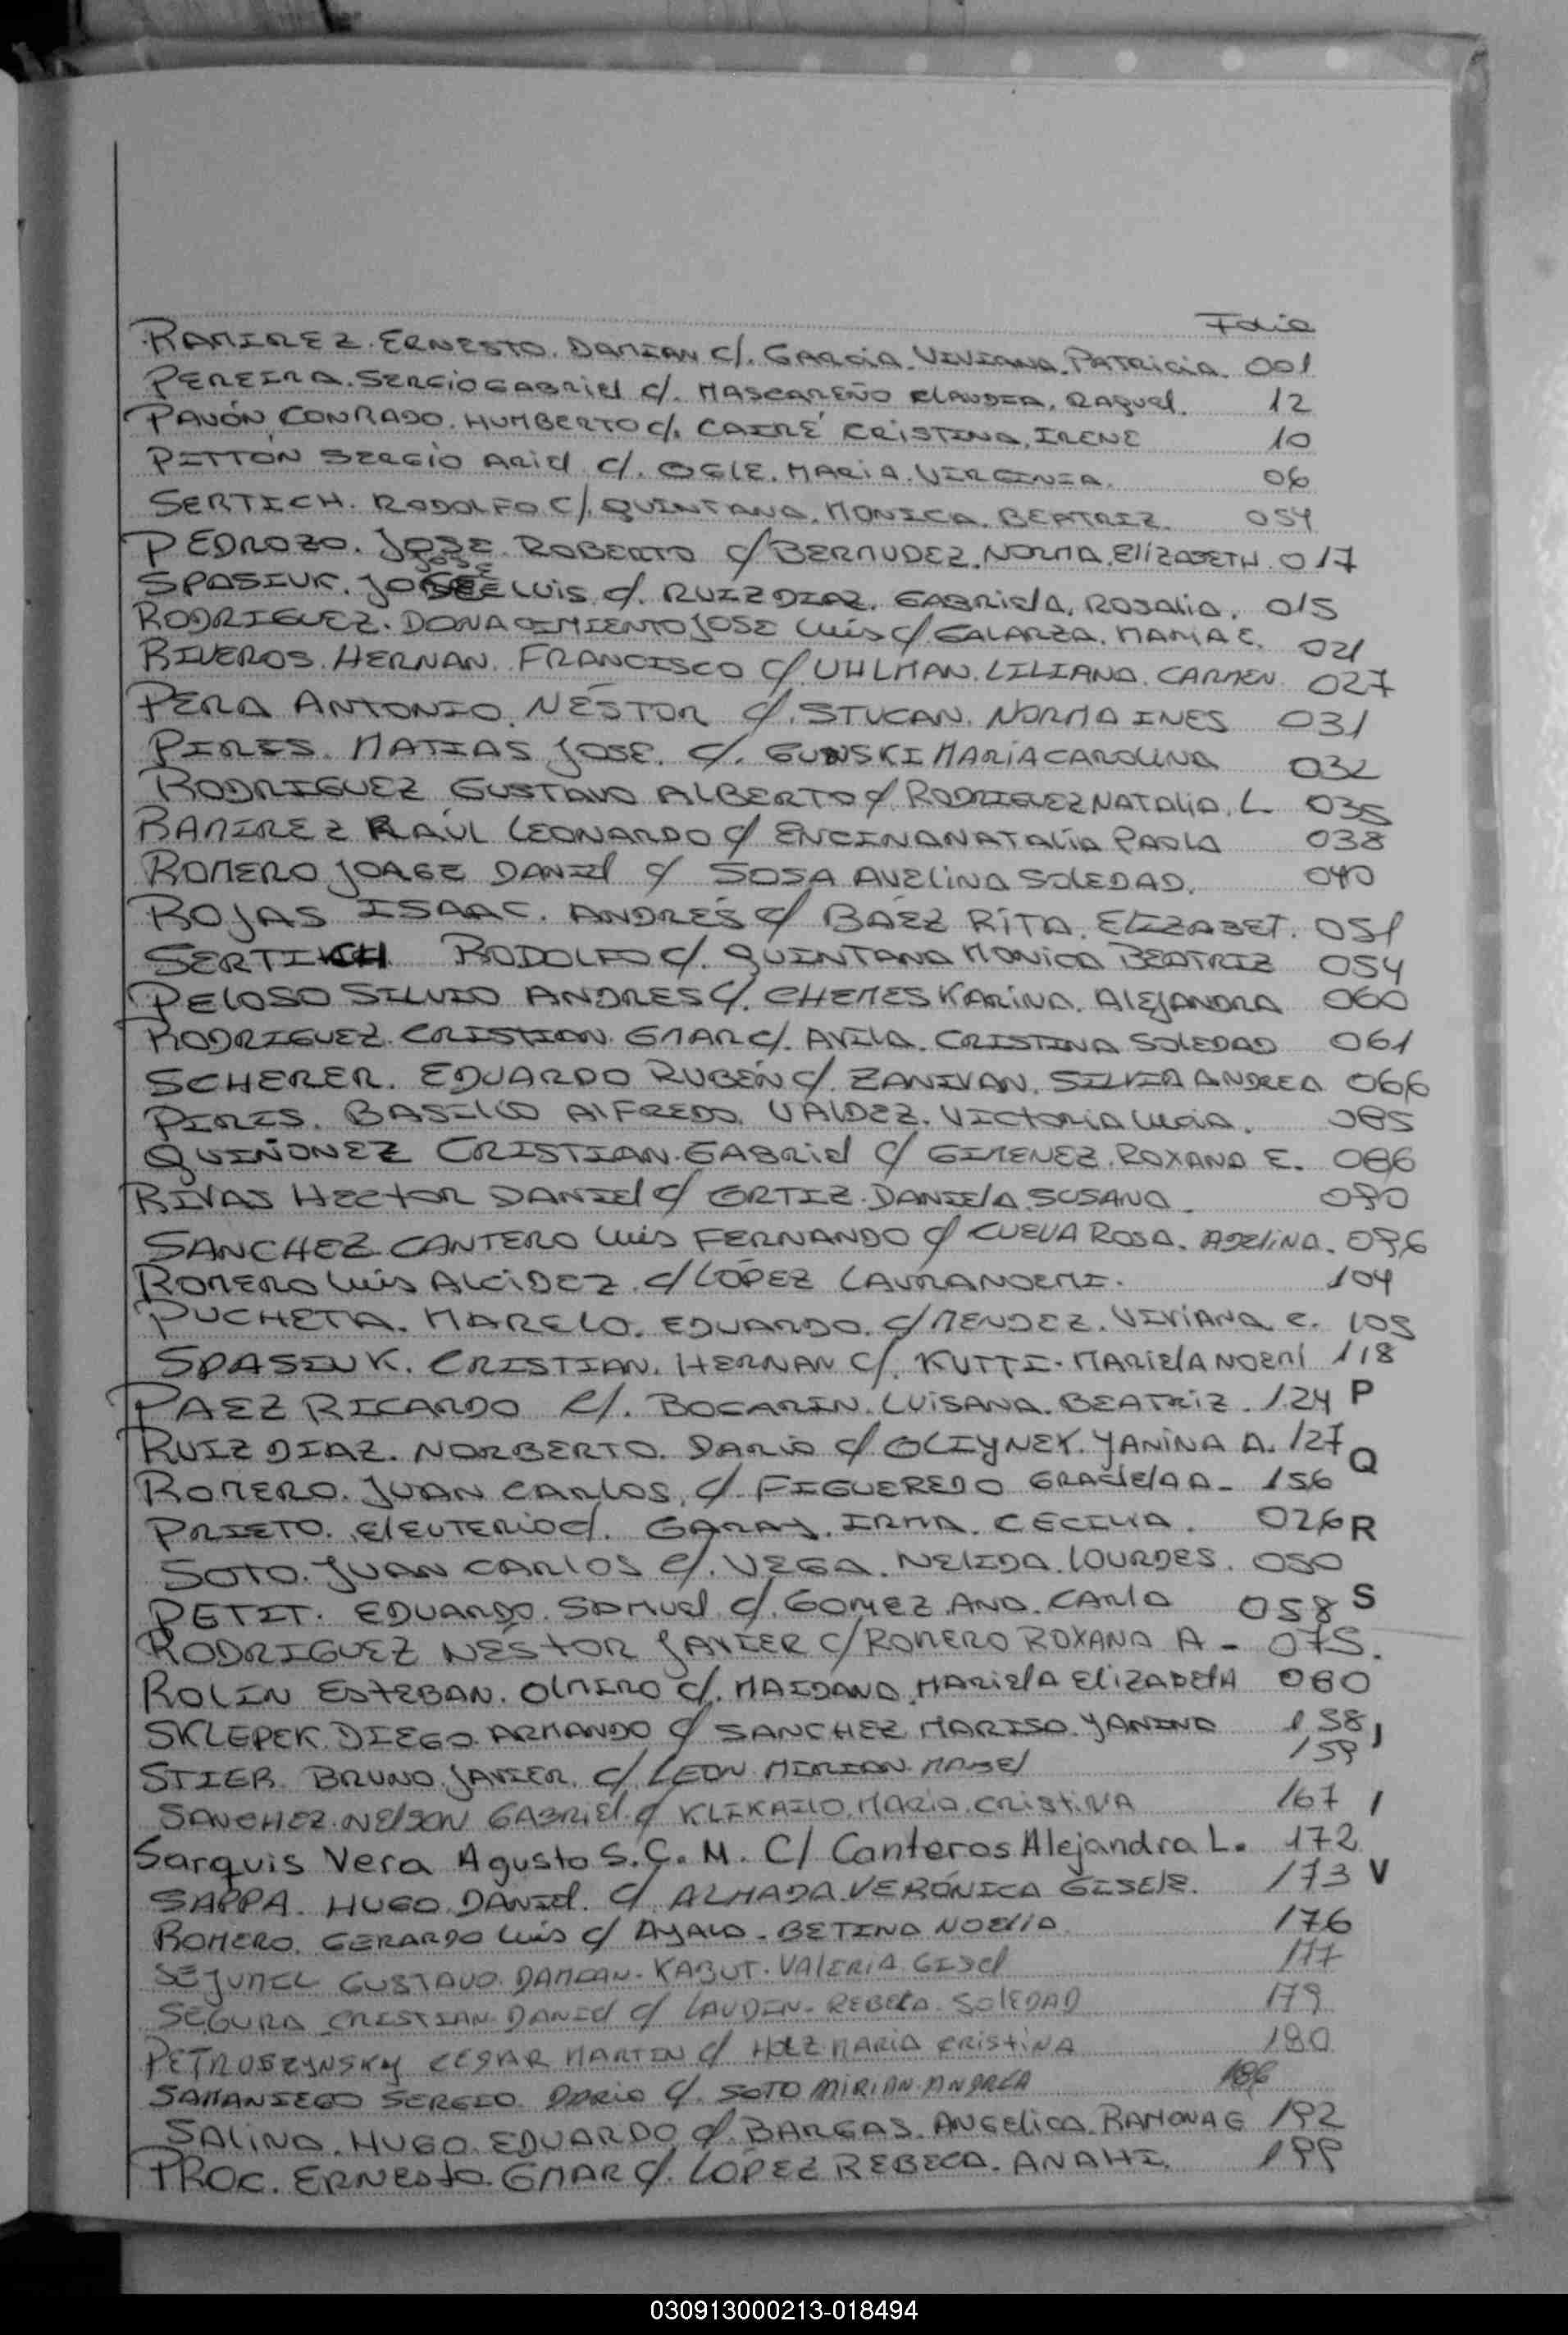 Folio
RAMIREZ. ERNESTO. DAMIAN c/. GARCIA. VIVIANA. PATRICIA. 001
PEREIRA. SERGIO GABRIEL c/. MASCAREÑO CLAUDIA. RAQUEL. 12
PAVÓN, CONRADO. HUMBERTO c/. CAIRÉ CRISTINA. IRENE 10
PITTÓN SERGIO ARIEL c/. OGLE. MARIA. VIRGINIA. 06
SERTICH. RODOLFO C/. QUINTANA. MONICA. BEATRIZ. 054
PEDROZO. JOSE. ROBERTO c/ BERMUDEZ. NORMA. ELIZABETH. 017
SPASIUK. JOSE LUIS c/. RUIZ DIAZ. GABRIELA. ROSALIA. 015
RODRIGUEZ. DONACIMIENTO JOSE LUIS c/. GALARZA. MARIA E. 021
RIVEROS. HERNAN. FRANCISCO c/ UHLMAN. LILIANA. CARMEN 027
PERA ANTONIO. NÉSTOR c/. STUCAN. NORMA INES 031
PIRES. MATIAS JOSE. c/. GUNSKI MARÍA CAROLINA 032
RODRIGUEZ GUSTAVO ALBERTO c/ RODRIGUEZ NATALIA. L 035
RAMIREZ RAÚL LEONARDO c/ ENCINA NATALÍA PAOLA 038
ROMERO JORGE DANIEL c/ SOSA AVELINA SOLEDAD. 040
ROJAS ISAAC. ANDRÉS c/ BÁEZ RITA. ELIZABET. 051
SERTICH RODOLFO c/. QUINTANA MONICA BEATRIZ 054
PELOSO SILVIO ANDRES c/. CHEMES KARINA. ALEJANDRA 060
RODRIGUEZ. CRISTIAN. OMAR c/. AVILA. CRISTINA SOLEDAD 061
SCHERER. EDUARDO RUBÉN c/. ZANIVAN. SILVIA ANDREA 066
PIRES. BASILIO ALFREDO. VALDEZ. VICTORIA LUCIA. 085
QUIÑONEZ CRISTIAN. GABRIEL c/ GIMENEZ. ROXANA E. 086
RIVAS HECTOR DANIEL c/ ORTIZ. DANIELA SUSANA. 090
SANCHEZ CANTERO LUIS FERNANDO c/ CUEVA ROSA. ADELINA. 096
ROMERO LUIS ALCIDEZ. c/ LÓPEZ LAURA NOEMI. 104
PUCHETA. MARCELO. EDUARDO. c/ MENDEZ. VIVIANA. E. 105
SPASIUK. CRISTIAN. HERNAN c/. KUTTI. MARIELA NOEMÍ 118
PAEZ RICARDO c/. BOGARIN. LUISANA. BEATRIZ. 124 P
RUIZ DIAZ. NORBERTO. DARIO c/ OLIYNEK. YANINA A. 127 Q
ROMERO. JUAN CARLOS, c/. FIGUEREDO GRACIELA A- 156
PRIETO. ELEUTERIO c/. GARAY. IRMA. CECILIA. 026 R
SOTO. JUAN CARLOS c/. VEGA. NELIDA. LOURDES. 050
PETIT. EDUARDO. SAMUEL c/. GOMEZ. ANA. CARLA 058 S
RODRIGUEZ NÉSTOR JAVIER c/ ROMERO ROXANA A - 075.
ROLIN ESTEBAN. OLMIRO c/. MAIDANA. MARIELA ELIZABETH 080
SKLEPEK DIEGO. ARMANDO c/ SANCHEZ MARISA YANINA 158
STIER BRUNO. JAVIER. c/ LEON MIRIAN. MABEL 159
SANCHEZ. NELSON GABRIEL. c/ KLIKAILO. MARIA. CRISTINA 167
Sarquis Vera Agusto S.C.M. C/ Canteros Alejandra L. 172
SAPPA. HUGO. DANIEL. c/. ALMADA. VERÓNICA GISELE. 173 V
ROMERO. GERARDO LUIS c/ AYALA. BETINA NOELIA 176
SEJUMIL GUSTAVO. DAMIAN. KABUT. VALERIA GISEL 177
SEGURA CRISTIAN DANIEL c/ LAUDIN. REBECA. SOLEDAD 179
PETRUSZYNSKY CESAR MARTIN c/ HOLZ MARIA CRISTINA 180
SAMANIEGO SERGIO. DARIO c/. SOTO MIRIAN. ANDREA 186
SALINA. HUGO. EDUARDO c/. BARGAS. ANGELICA. RAMONA G 192
PROC. ERNESTO. OMAR c/. LÓPEZ REBECA. ANAHI. 199
030913000213-018494